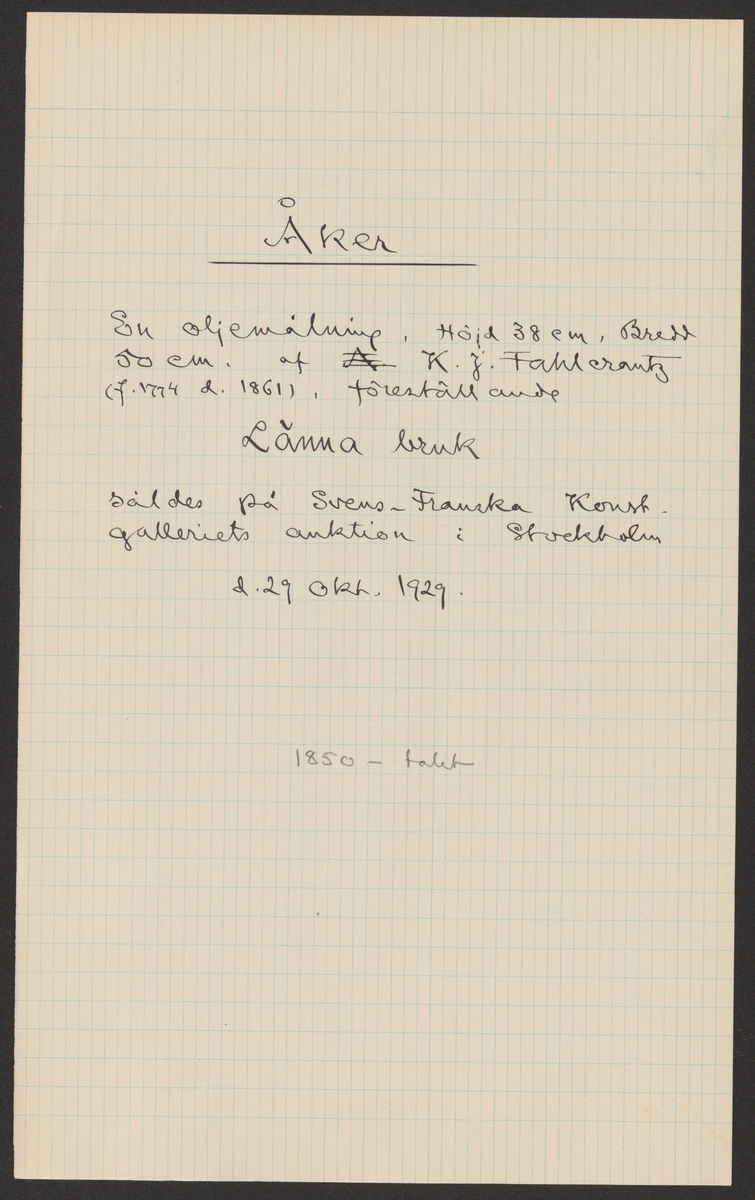 Åker
En oljemålning, Höjd 38 cm, Bredd
50 cm. af K. J. Fahlcrantz
(f. 1774 d. 1861), föreställande
Länna bruk
såldes på Svens-Franska Konst-
galleriets auktion i Stockholm
d. 29 Okt. 1929.
1850 - talet